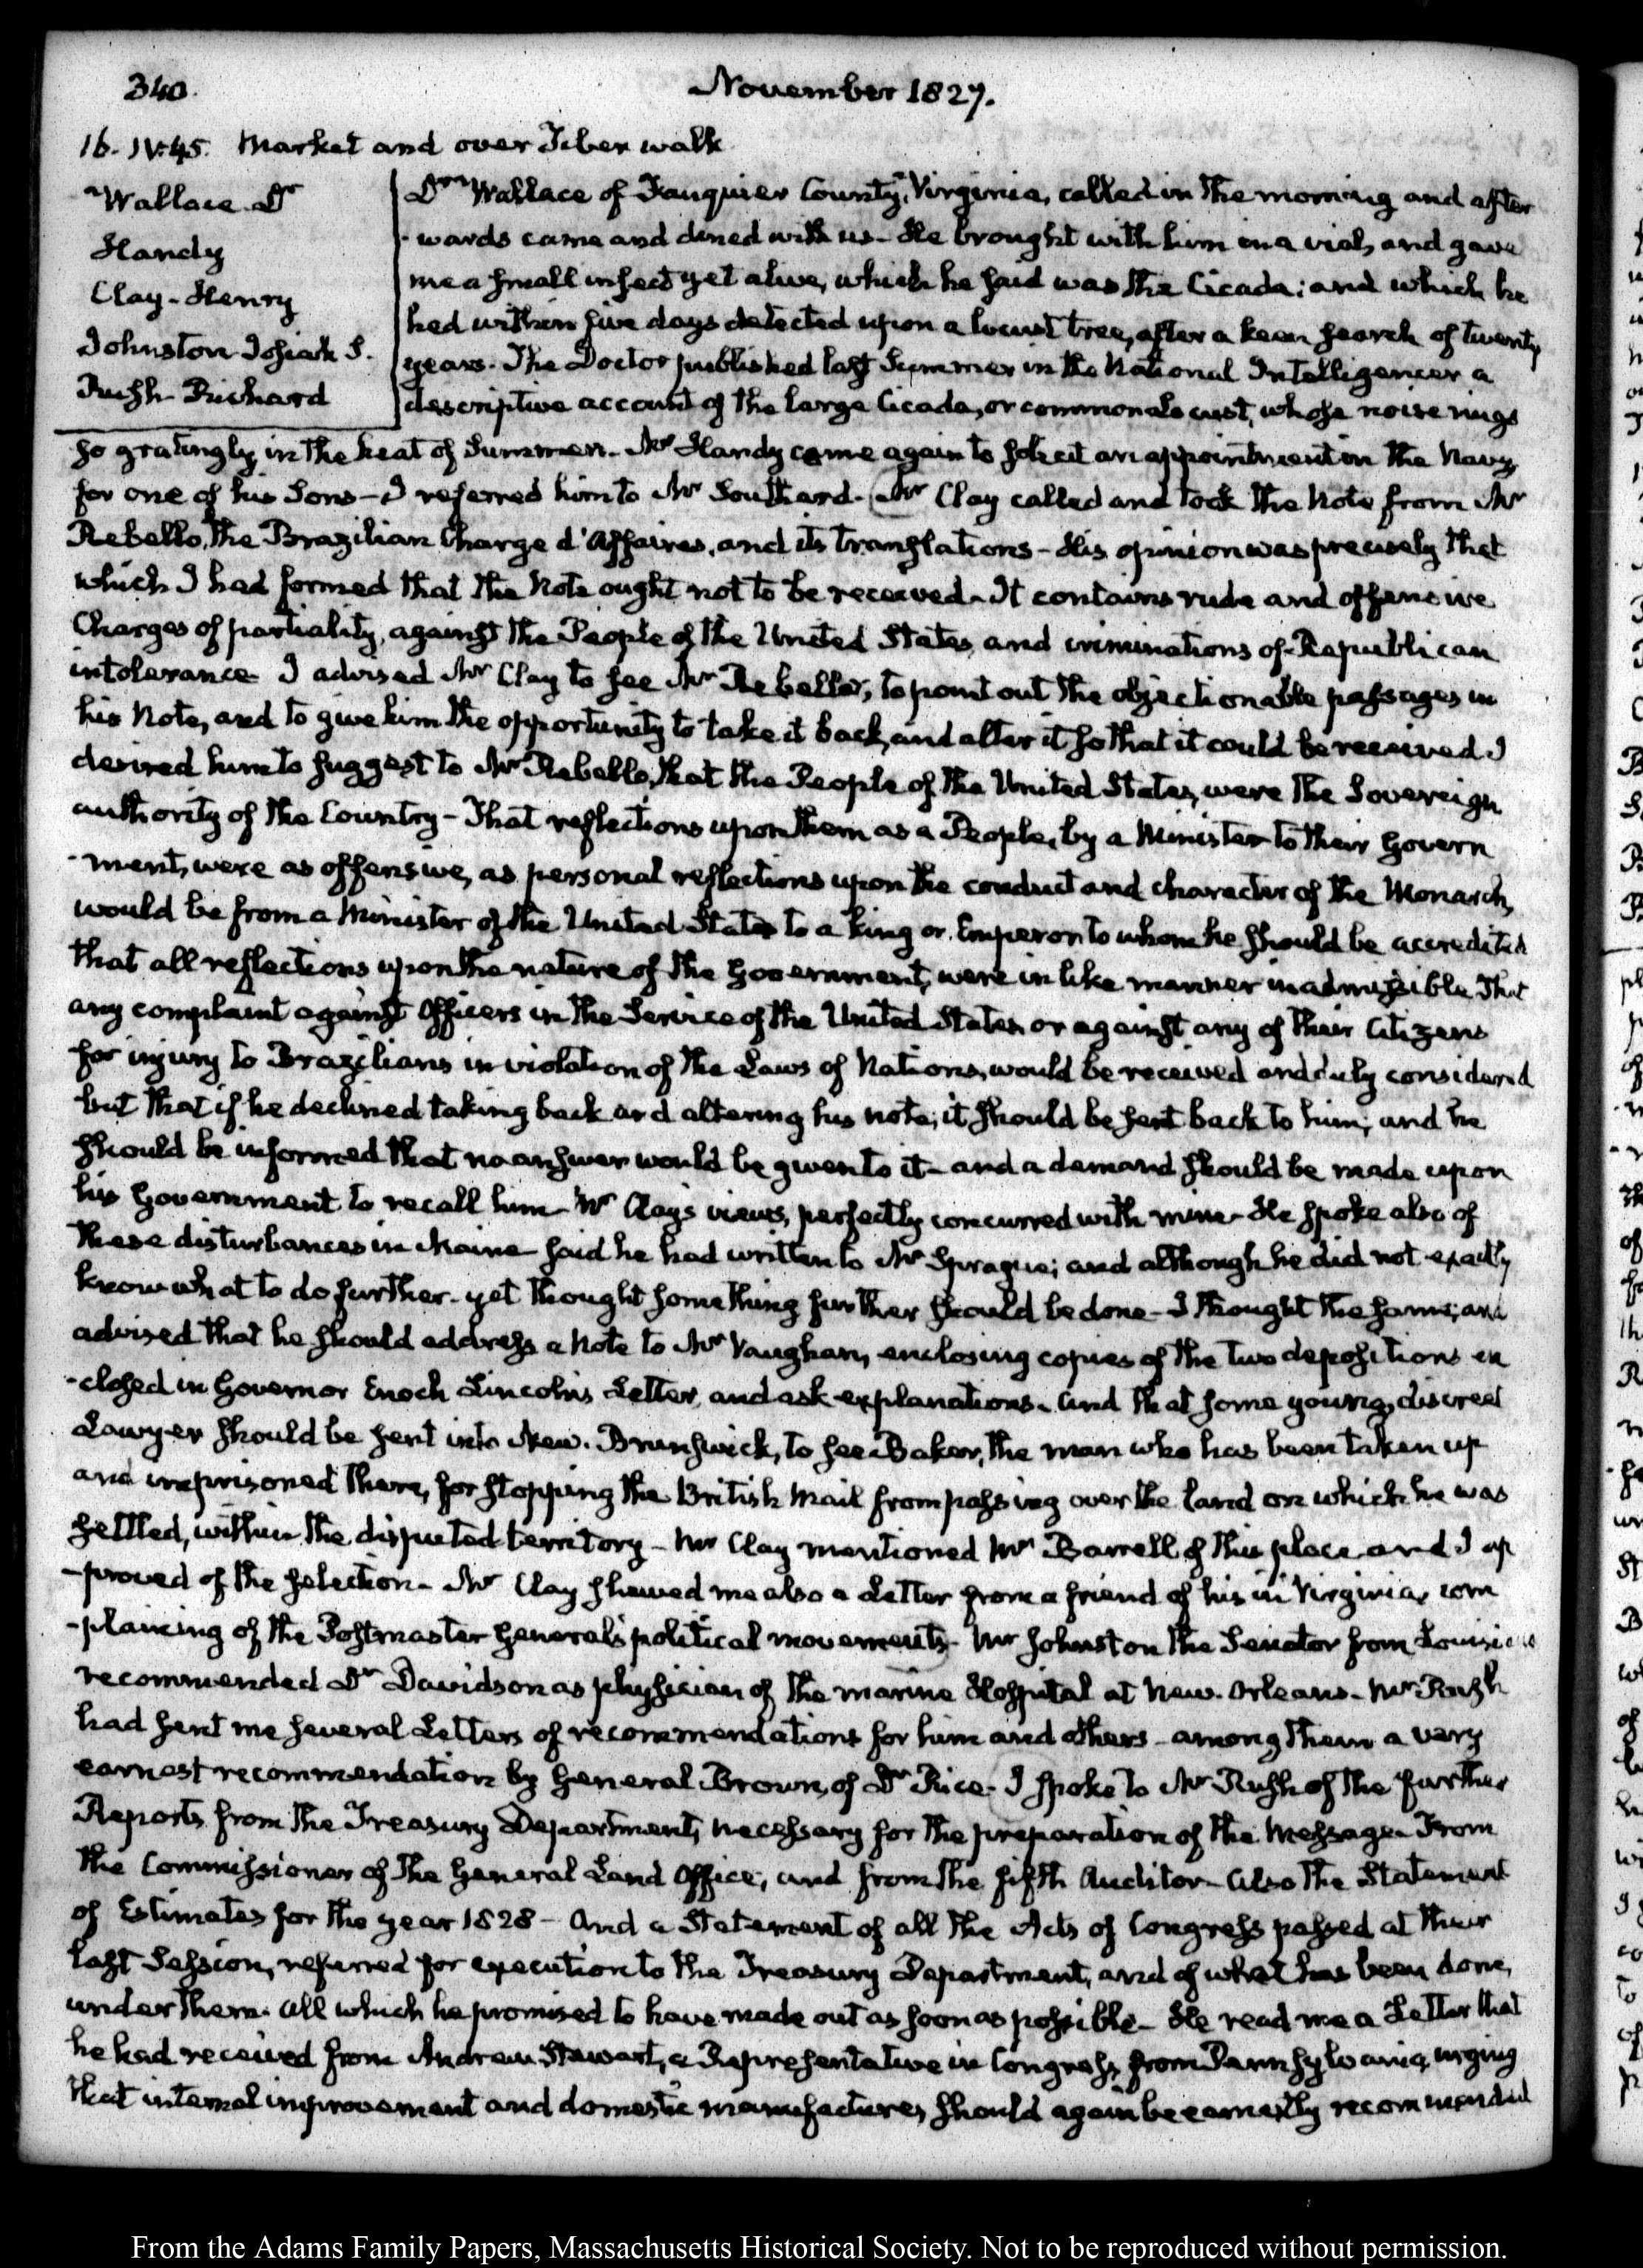 340.
November 1827.
16. IV:45. Market and over Tiber walk
Wallace. Dr
Handy
Clay-Henry
Johnston Josiah S.
Rush-Richard
Dr Wallace of Fauquier County, Virginia, called in the morning and after
-wards came and dined with us- He brought with him in a vial, and gave
me a small insect yet alive, which he said was the Cicada; and which he
had within five days detected upon a locust tree, after a keen search of twenty
years. The Doctor published last Summer in the National Intelligencer a
descriptive account of the large Cicada, or common locust, whose noise rings
so gratingly in the heat of Summer. Mr Handy came again to solicit an appointment in the Navy
for one of his Sons- I referred him to Mr Southard. Mr Clay called and took the Note from Mr
Rebello, the Brazilian Charge d'Affaires, and its translations- His opinion was precisely that
which I had formed that the Note ought not to be received. It contains rude and offensive
Charges of partiality, against the People of the United States, and criminations of Republican
intolerance. I advised Mr Clay to see Mr Rebello, to point out the objectionable passages in
his Note, and to give him the opportunity to take it back, and alter it so that it could be received I
desired him to suggest to Mr Rebello, that the People of the United States, were the Sovereign
authority of the Country- That reflections upon them as a People, by a Minister to their Govern
-ment, were as offensive, as personal reflections upon the conduct and character of the Monarch,
would be from a Minister of the United States to a king or Emperor to whom he should be accredited
that all reflections upon the nature of the Government, were in like manner inadmissible That
any complaint against Officers in the Service of the United States or against any of their Citizens
for injury to Brazilians in violation of the Laws of Nations, would be received and duly considered
but that if he declined taking back and altering his note, it should be sent back to him; and he
should be informed that no answer would be given to it- and a demand should be made upon
his Government to recall him- Mr Clay's views, perfectly concurred with mine- He spoke also of
these disturbances in Maine- said he had written to Mr Sprague; and although he did not exactly
know what to do further- yet thought something further should be done- I thought the same; and
advised that he should address a Note to Mr Vaughan, enclosing copies of the two depositions en
-closed in Governor Enoch Lincoln's Letter, and ask explanations. And that some young, discreet
Lawyer should be sent into New-Brunswick, to see Baker, the man who has been taken up
and imprisoned there, for stopping the British Mail from passing over the land on which he was
settled, within the disputed territory- Mr Clay mentioned Mr Barrell of this place and I ap
-proved of the selection- Mr Clay shewed me also a Letter from a friend of his in Virginia, com
-plaining of the Postmaster General's political movements- Mr Johnston the Senator from Louisiana
recommended Dr Davidson as physician of the marine Hospital at New-Orleans- Mr Rush
had sent me several Letters of recommendations for him and others- among them a very
earnest recommendation by General Brown, of Dr Rice- I spoke to Mr Rush of the further
Reports from the Treasury Department, necessary for the preparation of the Message- From
the Commissioner of the General Land Office, and from the fifth Auditor- Also the Statement
of Estimates for the year 1828- And a Statement of all the Acts of Congress passed at their
last Session, referred for execution to the Treasury Department, and of what has been done,
under them. All which he promised to have made out as soon as possible- He read me a Letter that
he had received from Andrew Stewart, a Representative in Congress, from Pennsylvania, urging
that internal improvement and domestic manufactures should again be earnestly recommended
From the Adams Family Papers, Massachusetts Historical Society. Not to be reproduced without permission.